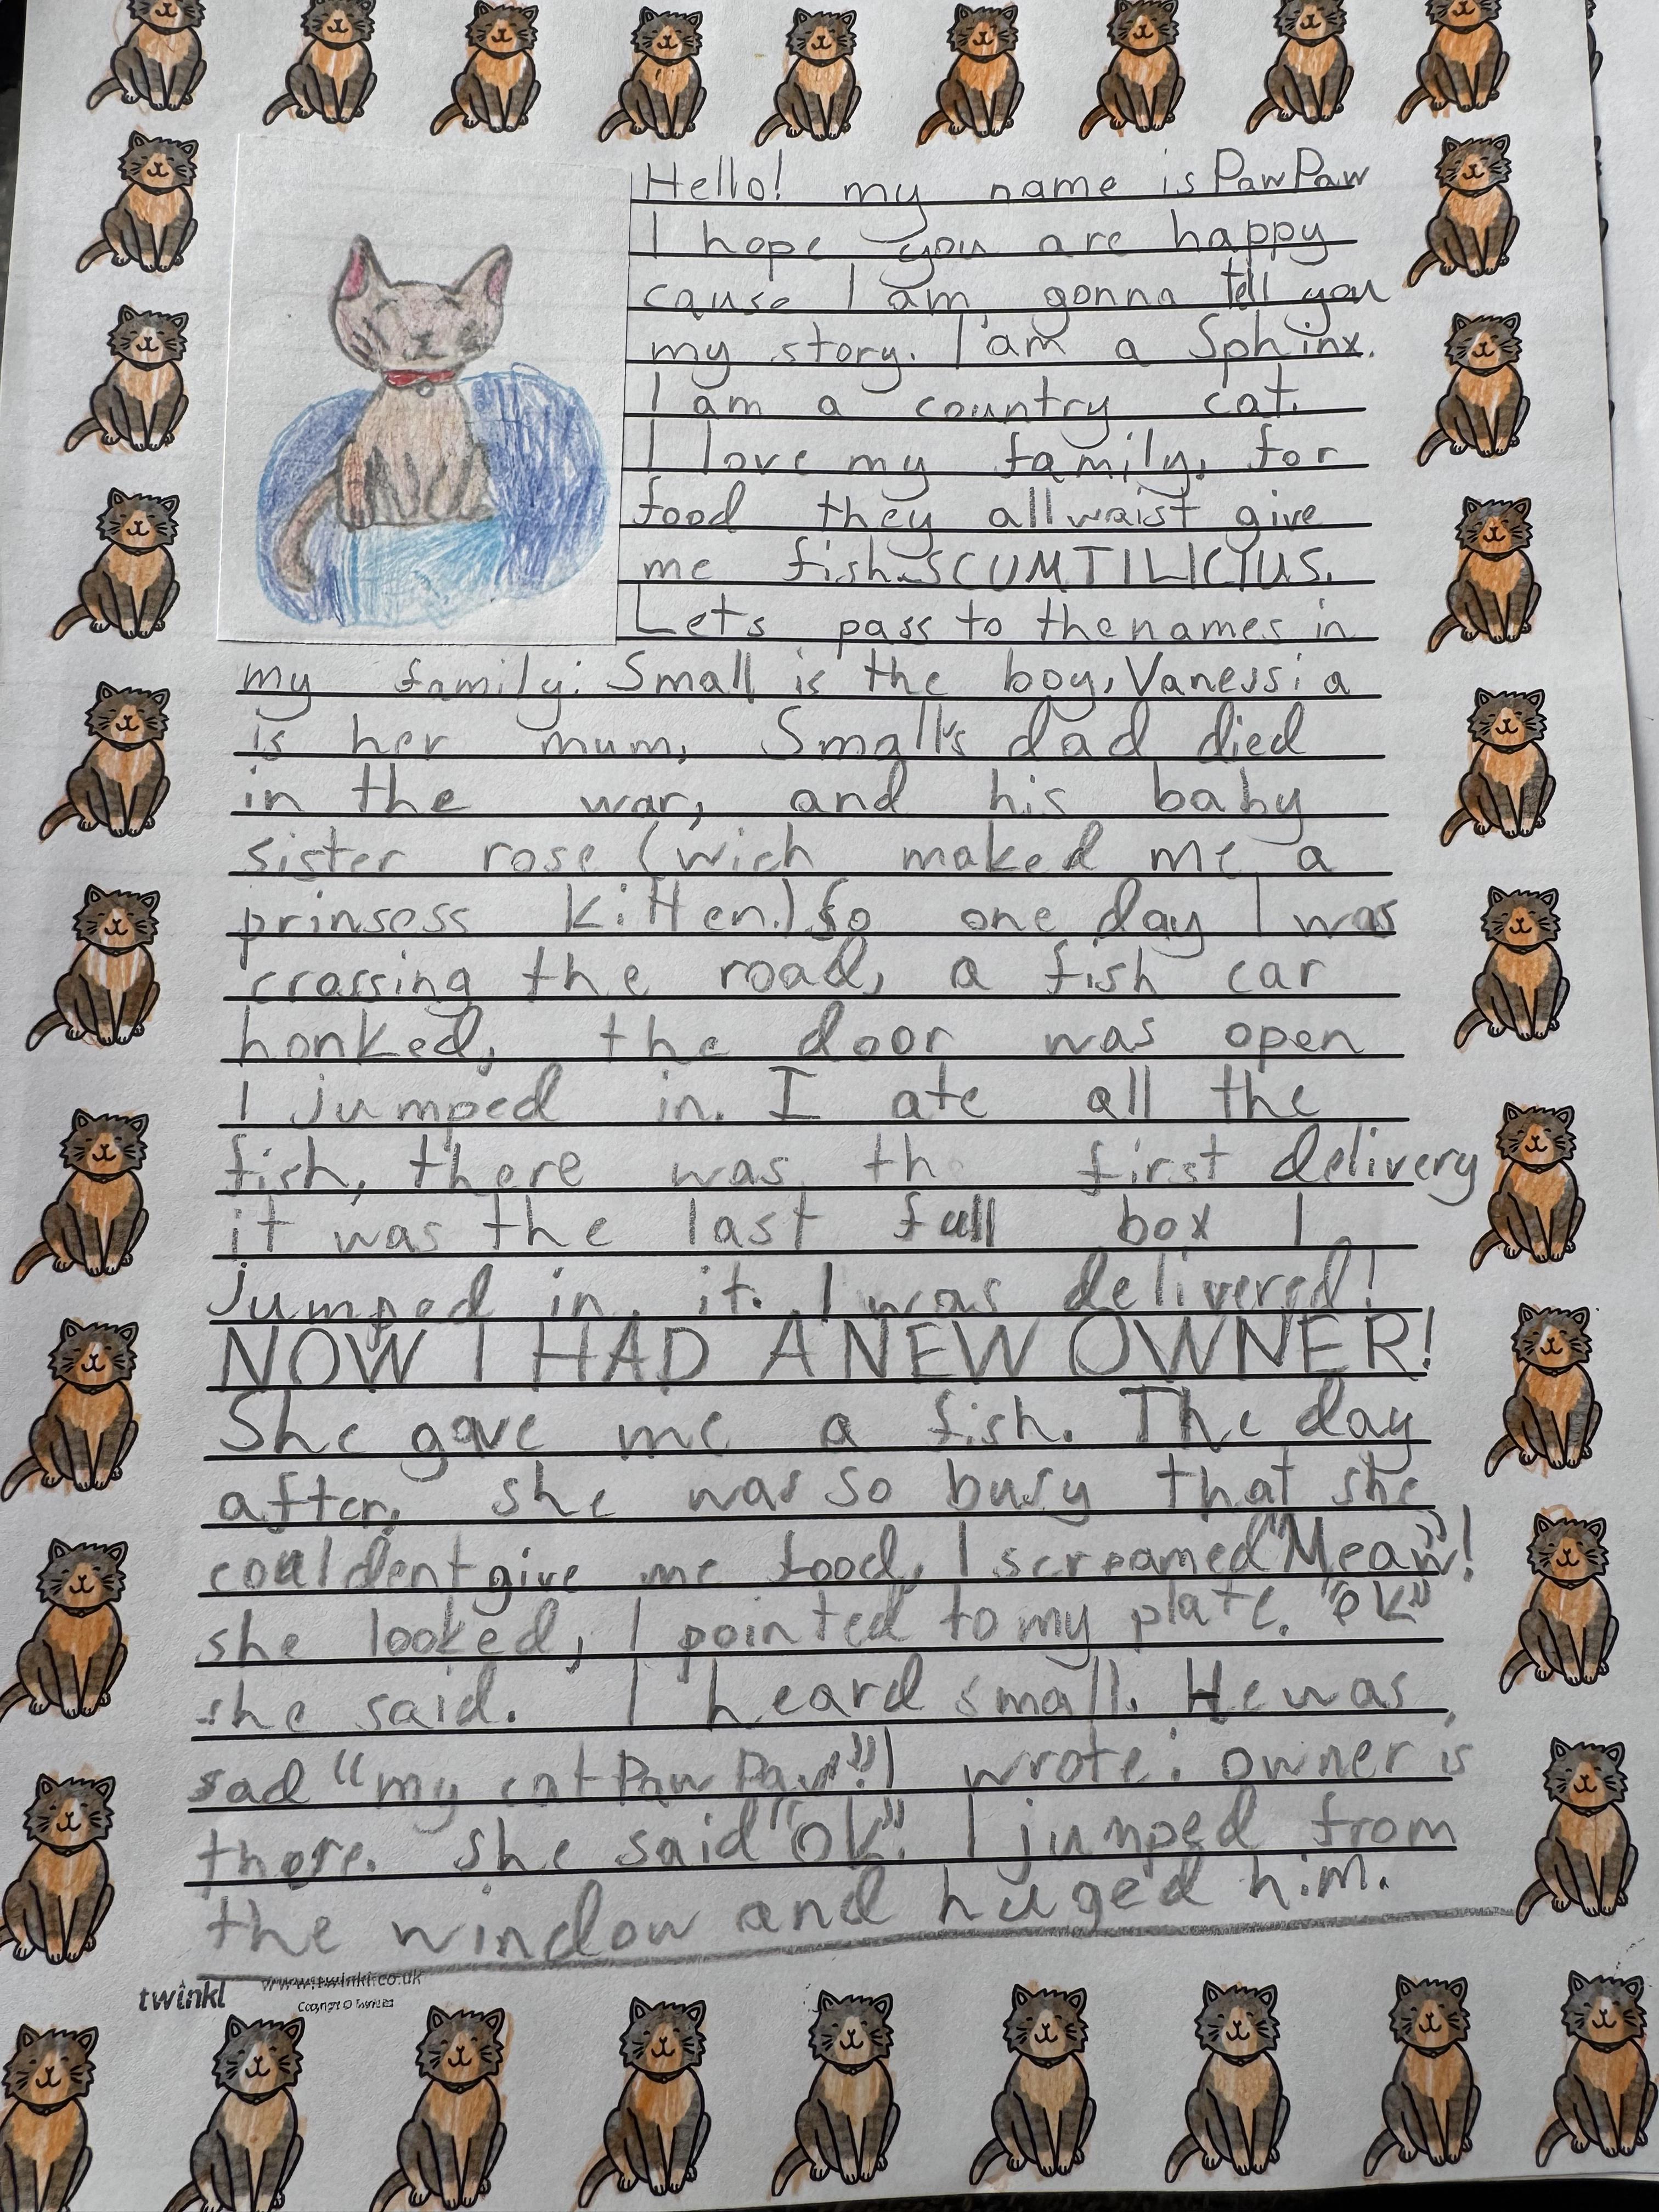 Hello! my name is PawPaw
I hope you are happy
cause I am gonna tell you
my story. I am a Sphinx.
I am a country cat.
I love my family, for
food they allwaist give
me fish. SCUMTILICIUS.
Lets pass to the names in
my family: Small is the boy, Vanessia
is her mum, Small's dad died
in the war, and his baby
sister rose (wich maked me a
prinsess kitten.) So one day I was
crossing the road, a fish car
honked, the door was open
I jumped in. I ate all the
fish, there was th first delivery
it was the last full box I
jumped in it. I was delivered!
NOW I HAD A NEW OWNER!
She gave me a fish. The day
after, she was so busy that she
couldent give me food, I screamed "Meaw"!
she looked, I pointed to my plate. "ok"
she said. I heard small. He was
sad "my cat Paw Paw"! I wrote: owner is
there. she said "ok". I jumped from
the window and huged him.
twinkl www.twinkl.co.uk
Copyright © Twinkl